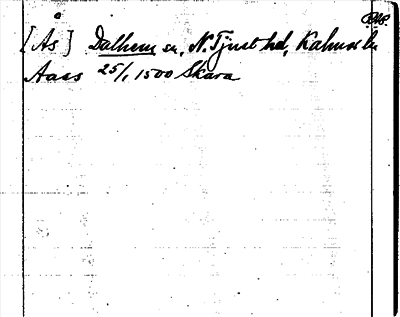 [Ås] Dalhem sn, N. Tjust hd, Kalmar län
Aaas 25/1 1500 Skara